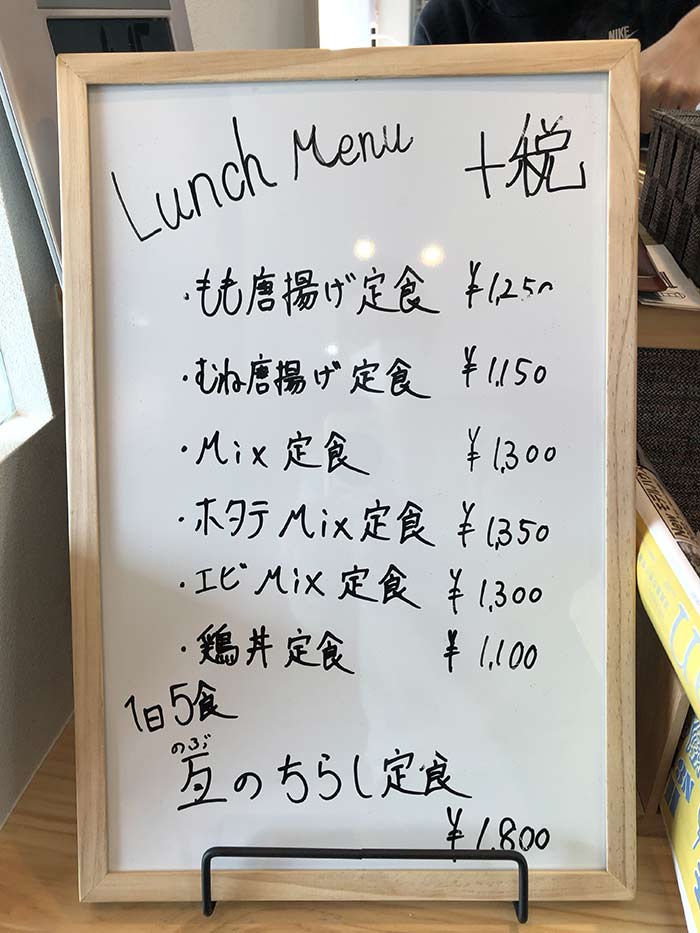 NIKE
Lunch Menu +税
・もも唐揚げ定食 ¥1,250
・むね唐揚げ定食 ¥1,150
・Mix定食 ¥1,300
・ホタテMix定食 ¥1,350
・エビMix定食 ¥1,300
・鶏丼定食 ¥1,100
1日5食
のぶ
亙のちらし定食
¥1,800